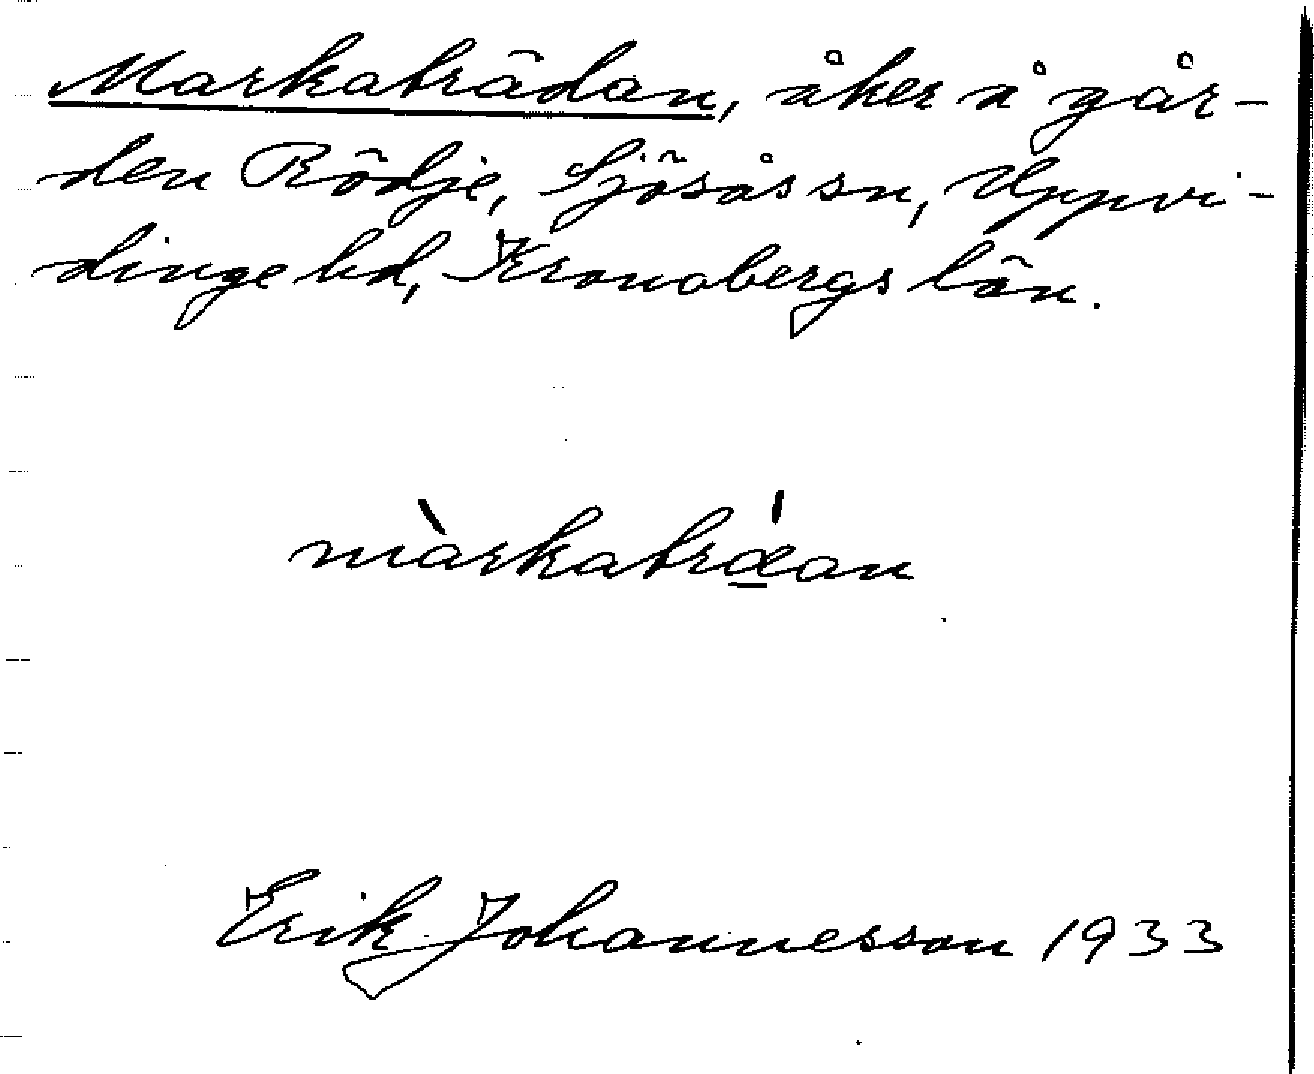 Markabrädan, åker å går-
den Rödje, Sjösås sn, Uppvi-
dinge hd, Kronobergs län.
màrkabrǽ̱an
Erik Johannesson 1933